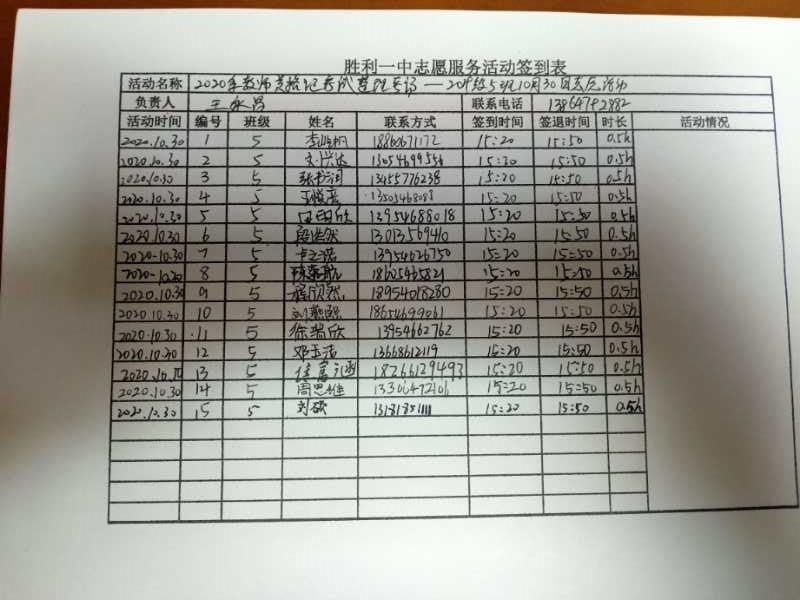 胜利一中志愿服务活动签到表
活动名称 2020年教师资格证考试整理考场——2019级5班10月30日志愿活动
负责人 王永昌 联系电话 13864792982
活动时间 编号 班级 姓名 联系方式 签到时间 签退时间 时长 活动情况
2020.10.30 1 5 18860671172 15:20 15:50 0.5h
2020.10.30 2 5 刘兴达 13054699554 15:20 15:50 0.5h
2020.10.30 3 5 张书润 13455776238 15:20 15:50 0.5h
2020.10.30 4 5 15:20 15:50 0.5h
2020.10.30 5 5 13954688018 15:20 15:50 0.5h
2020.10.30 6 5 15:20 15:50 0.5h
2020.10.30 7 5 13954626750 15:20 15:50 0.5h
2020.10.30 8 5 18605465821 15:20 15:50 0.5h
2020.10.30 9 5 程欣然 18954018280 15:20 15:50 0.5h
2020.10.30 10 5 18654699061 15:20 15:50 0.5h
2020.10.30 11 5 徐瑞欣 13954662762 15:20 15:50 0.5h
2020.10.30 12 5 邓玉洁 13668612119 15:20 15:50 0.5h
13 5 18266129493 15:20 15:50 0.5h
2020.10.30 14 5 周思维 15:20 15:50 0.5h
2020.10.30 15 5 刘硕 15:20 15:50 0.5h